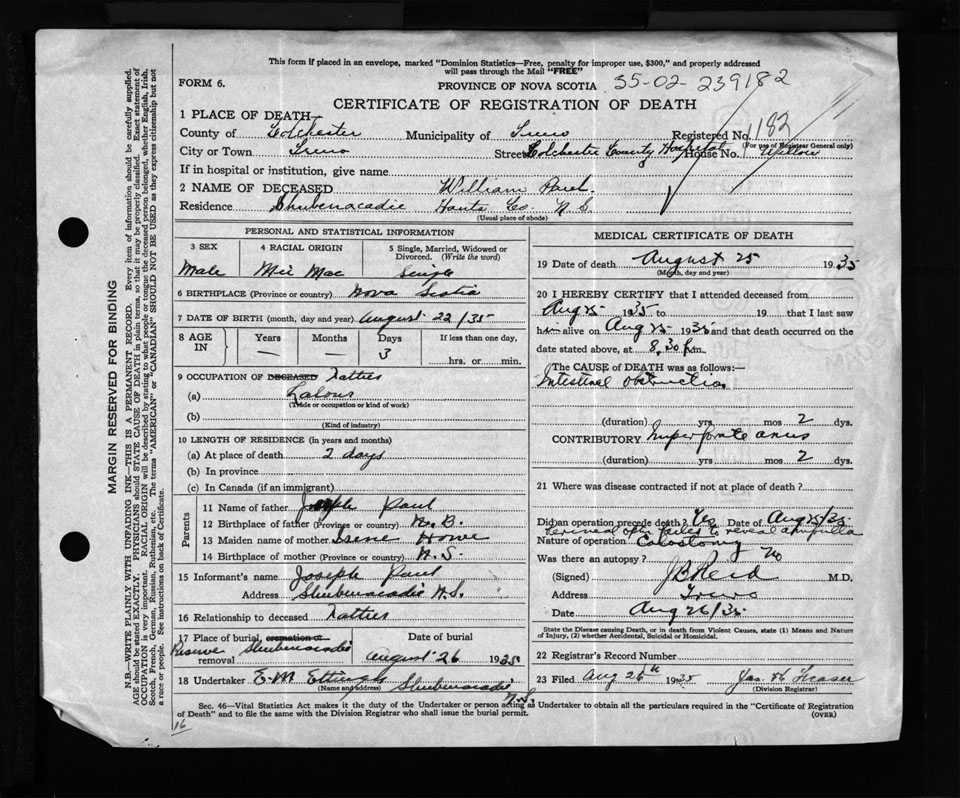 This form if placed in an envelope, marked "Dominion Statistics—Free, penalty for improper use, $300," and properly addressed
will pass through the Mail "FREE"
FORM 6.
PROVINCE OF NOVA SCOTIA 35-02-239182
CERTIFICATE OF REGISTRATION OF DEATH
1 PLACE OF DEATH—
County of Colchester Municipality of Truro Registered No. 1182
(For use of Registrar General only)
City or Town Truro Street Colchester County Hospital House No. Willow
If in hospital or institution, give name
2 NAME OF DECEASED William Paul.
Residence Shubenacadie Hants Co. N.S.
(Usual place of abode)
PERSONAL AND STATISTICAL INFORMATION
3 SEX
Male
4 RACIAL ORIGIN
Mic Mac
5 Single, Married, Widowed or
Divorced. (Write the word)
Single
6 BIRTHPLACE (Province or country) Nova Scotia
7 DATE OF BIRTH (month, day and year) August 22/35
8 AGE
IN
Years
—
Months
—
Days
3
If less than one day,
hrs. or min.
9 OCCUPATION OF DECEASED Father
(a) Labour
(Trade or occupation or kind of work)
(b)
(Kind of industry)
10 LENGTH OF RESIDENCE (in years and months)
(a) At place of death 2 days
(b) In province
(c) In Canada (if an immigrant)
Parents
11 Name of father Joseph Paul
12 Birthplace of father (Province or country) N.B.
13 Maiden name of mother Irene Howe
14 Birthplace of mother (Province or country) N.S.
15 Informant's name Joseph Paul
Address Shubenacadie N.S.
16 Relationship to deceased Father
17 Place of burial, cremation or
removal Reserve Shubenacadie
Date of burial
August 26 1935
18 Undertaker E.M. Ettinger Shubenacadie N.S.
(Name and address)
MEDICAL CERTIFICATE OF DEATH
19 Date of death August 25 1935
(Month, day and year)
20 I HEREBY CERTIFY that I attended deceased from
Aug 25 1935 to 19 that I last saw
him alive on Aug 25 1935 and that death occurred on
the date stated above, at 8.30 p.m.
The CAUSE of DEATH was as follows:—
Intestinal obstruction
(duration) yrs. mos 2 dys.
CONTRIBUTORY Imperforate anus
(duration) yrs mos 2 dys.
21 Where was disease contracted if not at place of death?
Did an operation precede death? Yes Date of Aug 25/35
Perineal opr. failed to reveal ampulla
Nature of operation Colostomy
Was there an autopsy? No
(Signed) J B Reid M.D.
Address Truro
Date Aug 26/35
State the Disease causing Death, or in death from Violent Causes, state (1) Means and Nature
of Injury, (2) whether Accidental, Suicidal or Homicidal.
22 Registrar's Record Number
23 Filed Aug 26th 1935 Jas. H. Fraser
(Division Registrar)
Sec. 46—Vital Statistics Act makes it the duty of the Undertaker or person acting as Undertaker to obtain all the particulars required in the "Certificate of Registration
of Death" and to file the same with the Division Registrar who shall issue the burial permit. (OVER)
16
MARGIN RESERVED FOR BINDING
N.B.—WRITE PLAINLY WITH UNFADING INK—THIS IS A PERMANENT RECORD. Every item of information should be carefully supplied.
AGE should be stated EXACTLY. PHYSICIANS should STATE CAUSE OF DEATH in plain terms, so that it may be properly classified. Exact statement of
OCCUPATION is very important. RACIAL ORIGIN will be described by stating to what people or tongue the deceased person belonged, whether English, Irish,
Scotch, French, German, Russian, Ruthenian, etc. The terms "AMERICAN" or "CANADIAN" SHOULD NOT BE USED as they express citizenship but not
a race or people. See instructions on back of Certificate.